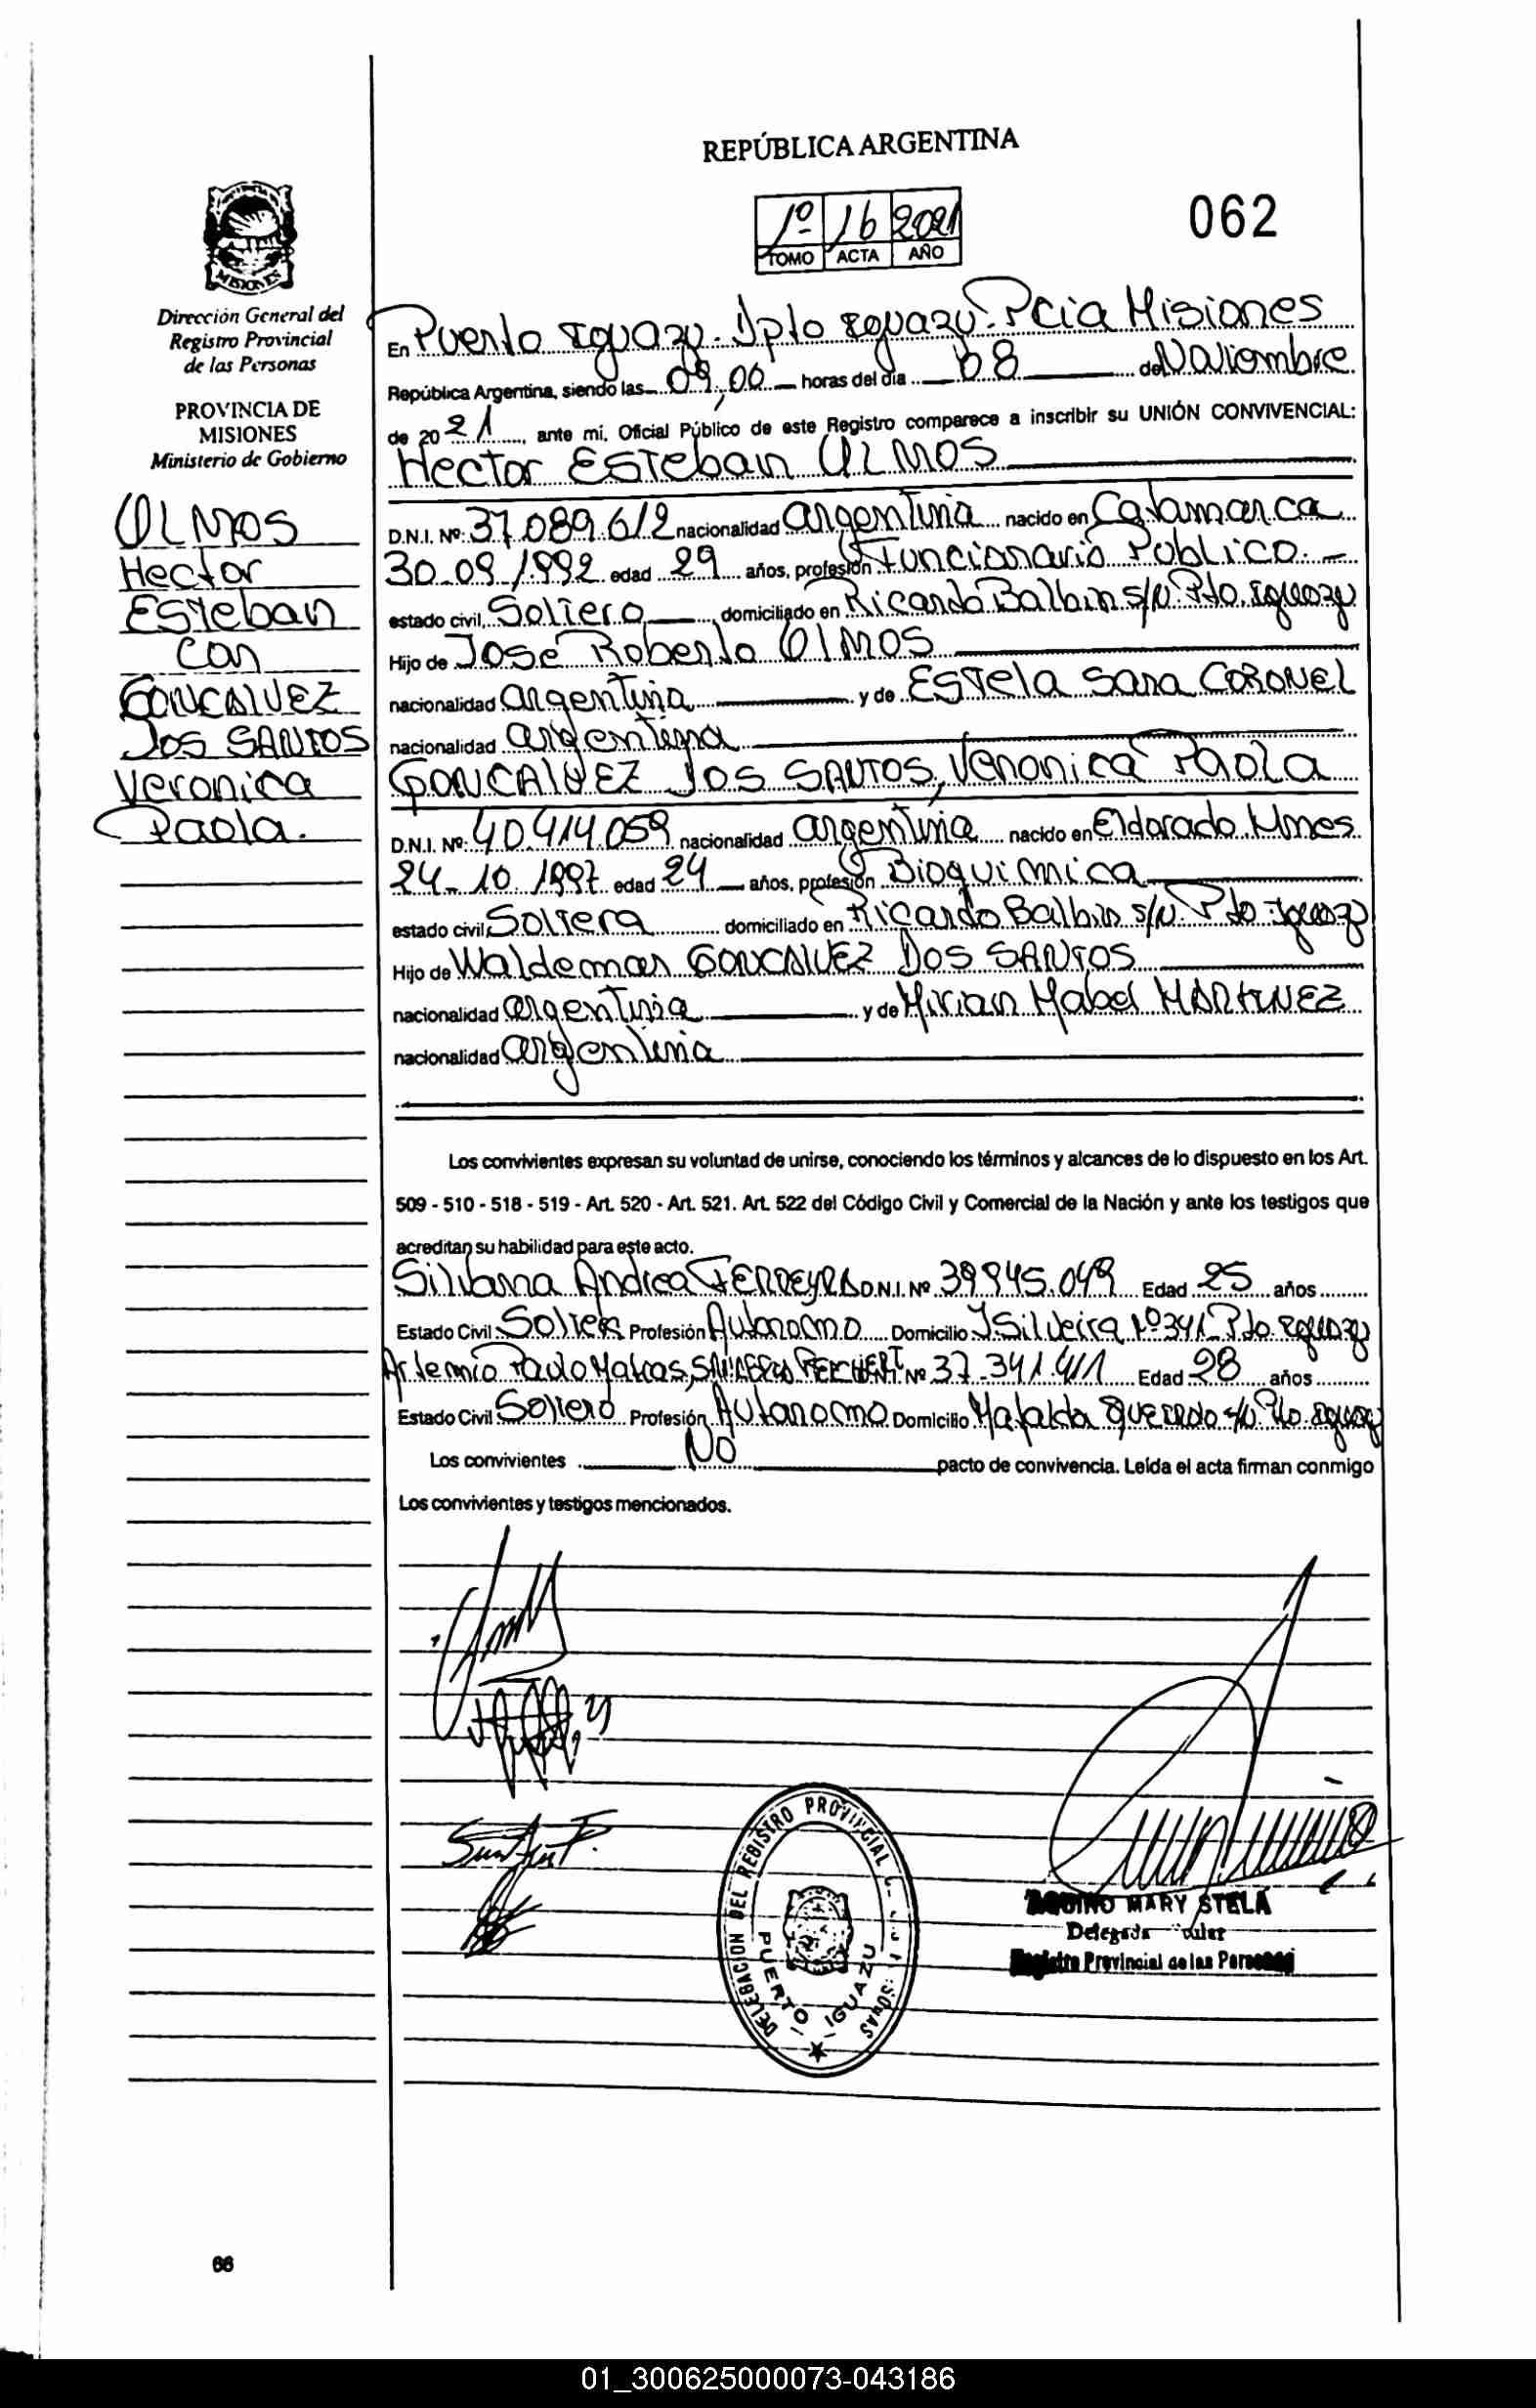 REPÚBLICA ARGENTINA
1º 16 2021
TOMO ACTA AÑO
062
MISIONES
Dirección General del
Registro Provincial
de las Personas
PROVINCIA DE
MISIONES
Ministerio de Gobierno
OLMOS
Hector
Esteban
con
GONCALVEZ
DOS SANTOS
Veronica
Paola.
En Puerto Iguazu. Dpto Iguazú. Pcia Misiones
República Argentina, siendo las 09,00 horas del día 08 de Noviembre
de 2021, ante mí, Oficial Público de este Registro comparece a inscribir su UNIÓN CONVIVENCIAL:
Hector Esteban OLMOS
D.N.I. Nº: 37.089.612 nacionalidad argentina nacido en Catamarca
30-09-1992 edad 29 años, profesión Funcionario Publico.-
estado civil, Soltero domiciliado en Ricardo Balbin s/n. Pto. Iguazu
Hijo de Jose Roberto OLMOS
nacionalidad argentina y de Estela Sara CORONEL
nacionalidad argentina
GONCALVEZ DOS SANTOS, Veronica Paola
D.N.I. Nº: 40.414.059 nacionalidad argentina nacido en Eldorado. Mnes.
24-10-1997 edad 24 años, profesión Bioquimica
estado civil, Soltera domiciliado en Ricardo Balbin s/n. Pto Iguazu
Hijo de Waldemar GONCALVEZ DOS SANTOS
nacionalidad argentina y de Mirian Mabel MARTINEZ
nacionalidad argentina
Los convivientes expresan su voluntad de unirse, conociendo los términos y alcances de lo dispuesto en los Art.
509 - 510 - 518 - 519 - Art. 520 - Art. 521. Art. 522 del Código Civil y Comercial de la Nación y ante los testigos que
acreditan su habilidad para este acto.
Silvana Andrea FERREYRA D.N.I. Nº 39.945.049 Edad 25 años
Estado Civil Soltera Profesión Autonomo Domicilio Silveira Nº 341 Pto. Iguazu
Artemio Paulo Matias, Nº 37.341.411 Edad 28 años
Estado Civil Soltero Profesión Autonomo Domicilio Mafalda s/n. Pto. Iguazu
Los convivientes No pacto de convivencia. Leída el acta firman conmigo
Los convivientes y testigos mencionados.
DELEGACION DEL REGISTRO PROVINCIAL
PUERTO IGUAZU
AQUINO MARY STELA
Delegada
Registro Provincial de las Personas
66
01_300625000073-043186